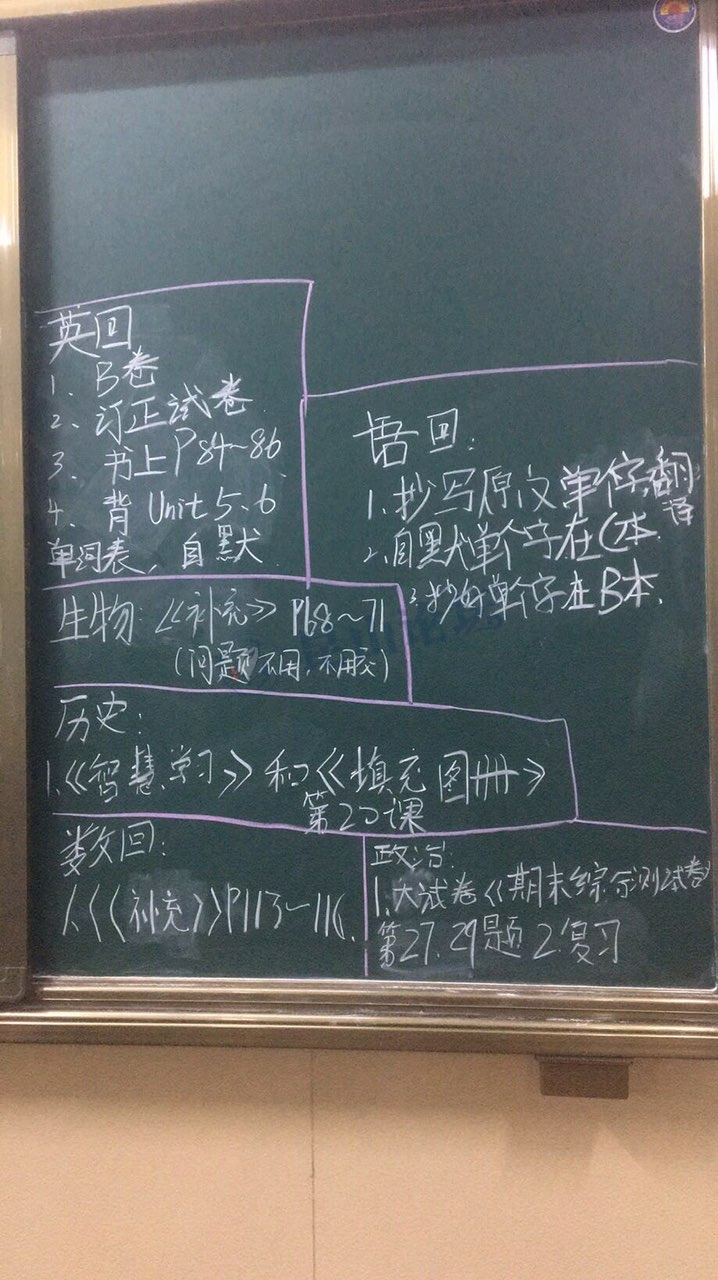 英回
1、B卷
2、订正试卷
3、书上P84~86
4、背Unit 5、6
单词表，自默
语回：
1.抄写原文单字,翻译
2.自默单个字在C本.
3.抄 单个字在B本.
生物：《补充》P68~71
（问题不用，不用交）
历史：
1.《智慧学习》和《填充图册》
第20课
数回：
1.《补充》P113~116.
政治：
1.大试卷《期末综合测试卷》
第27.29题 2.复习